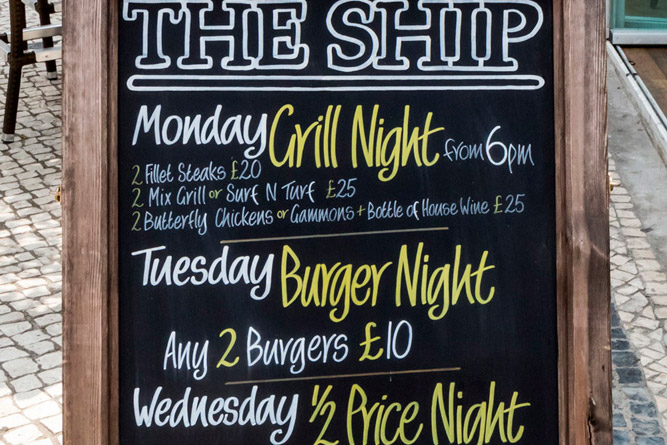 THE SHIP
Monday Grill Night from 6pm
2 Fillet Steaks £20
2 Mix Grill or Surf N Turf £25
2 Butterfly Chickens or Gammons + Bottle of House Wine £25
Tuesday Burger Night
Any 2 Burgers £10
Wednesday ½ Price Night